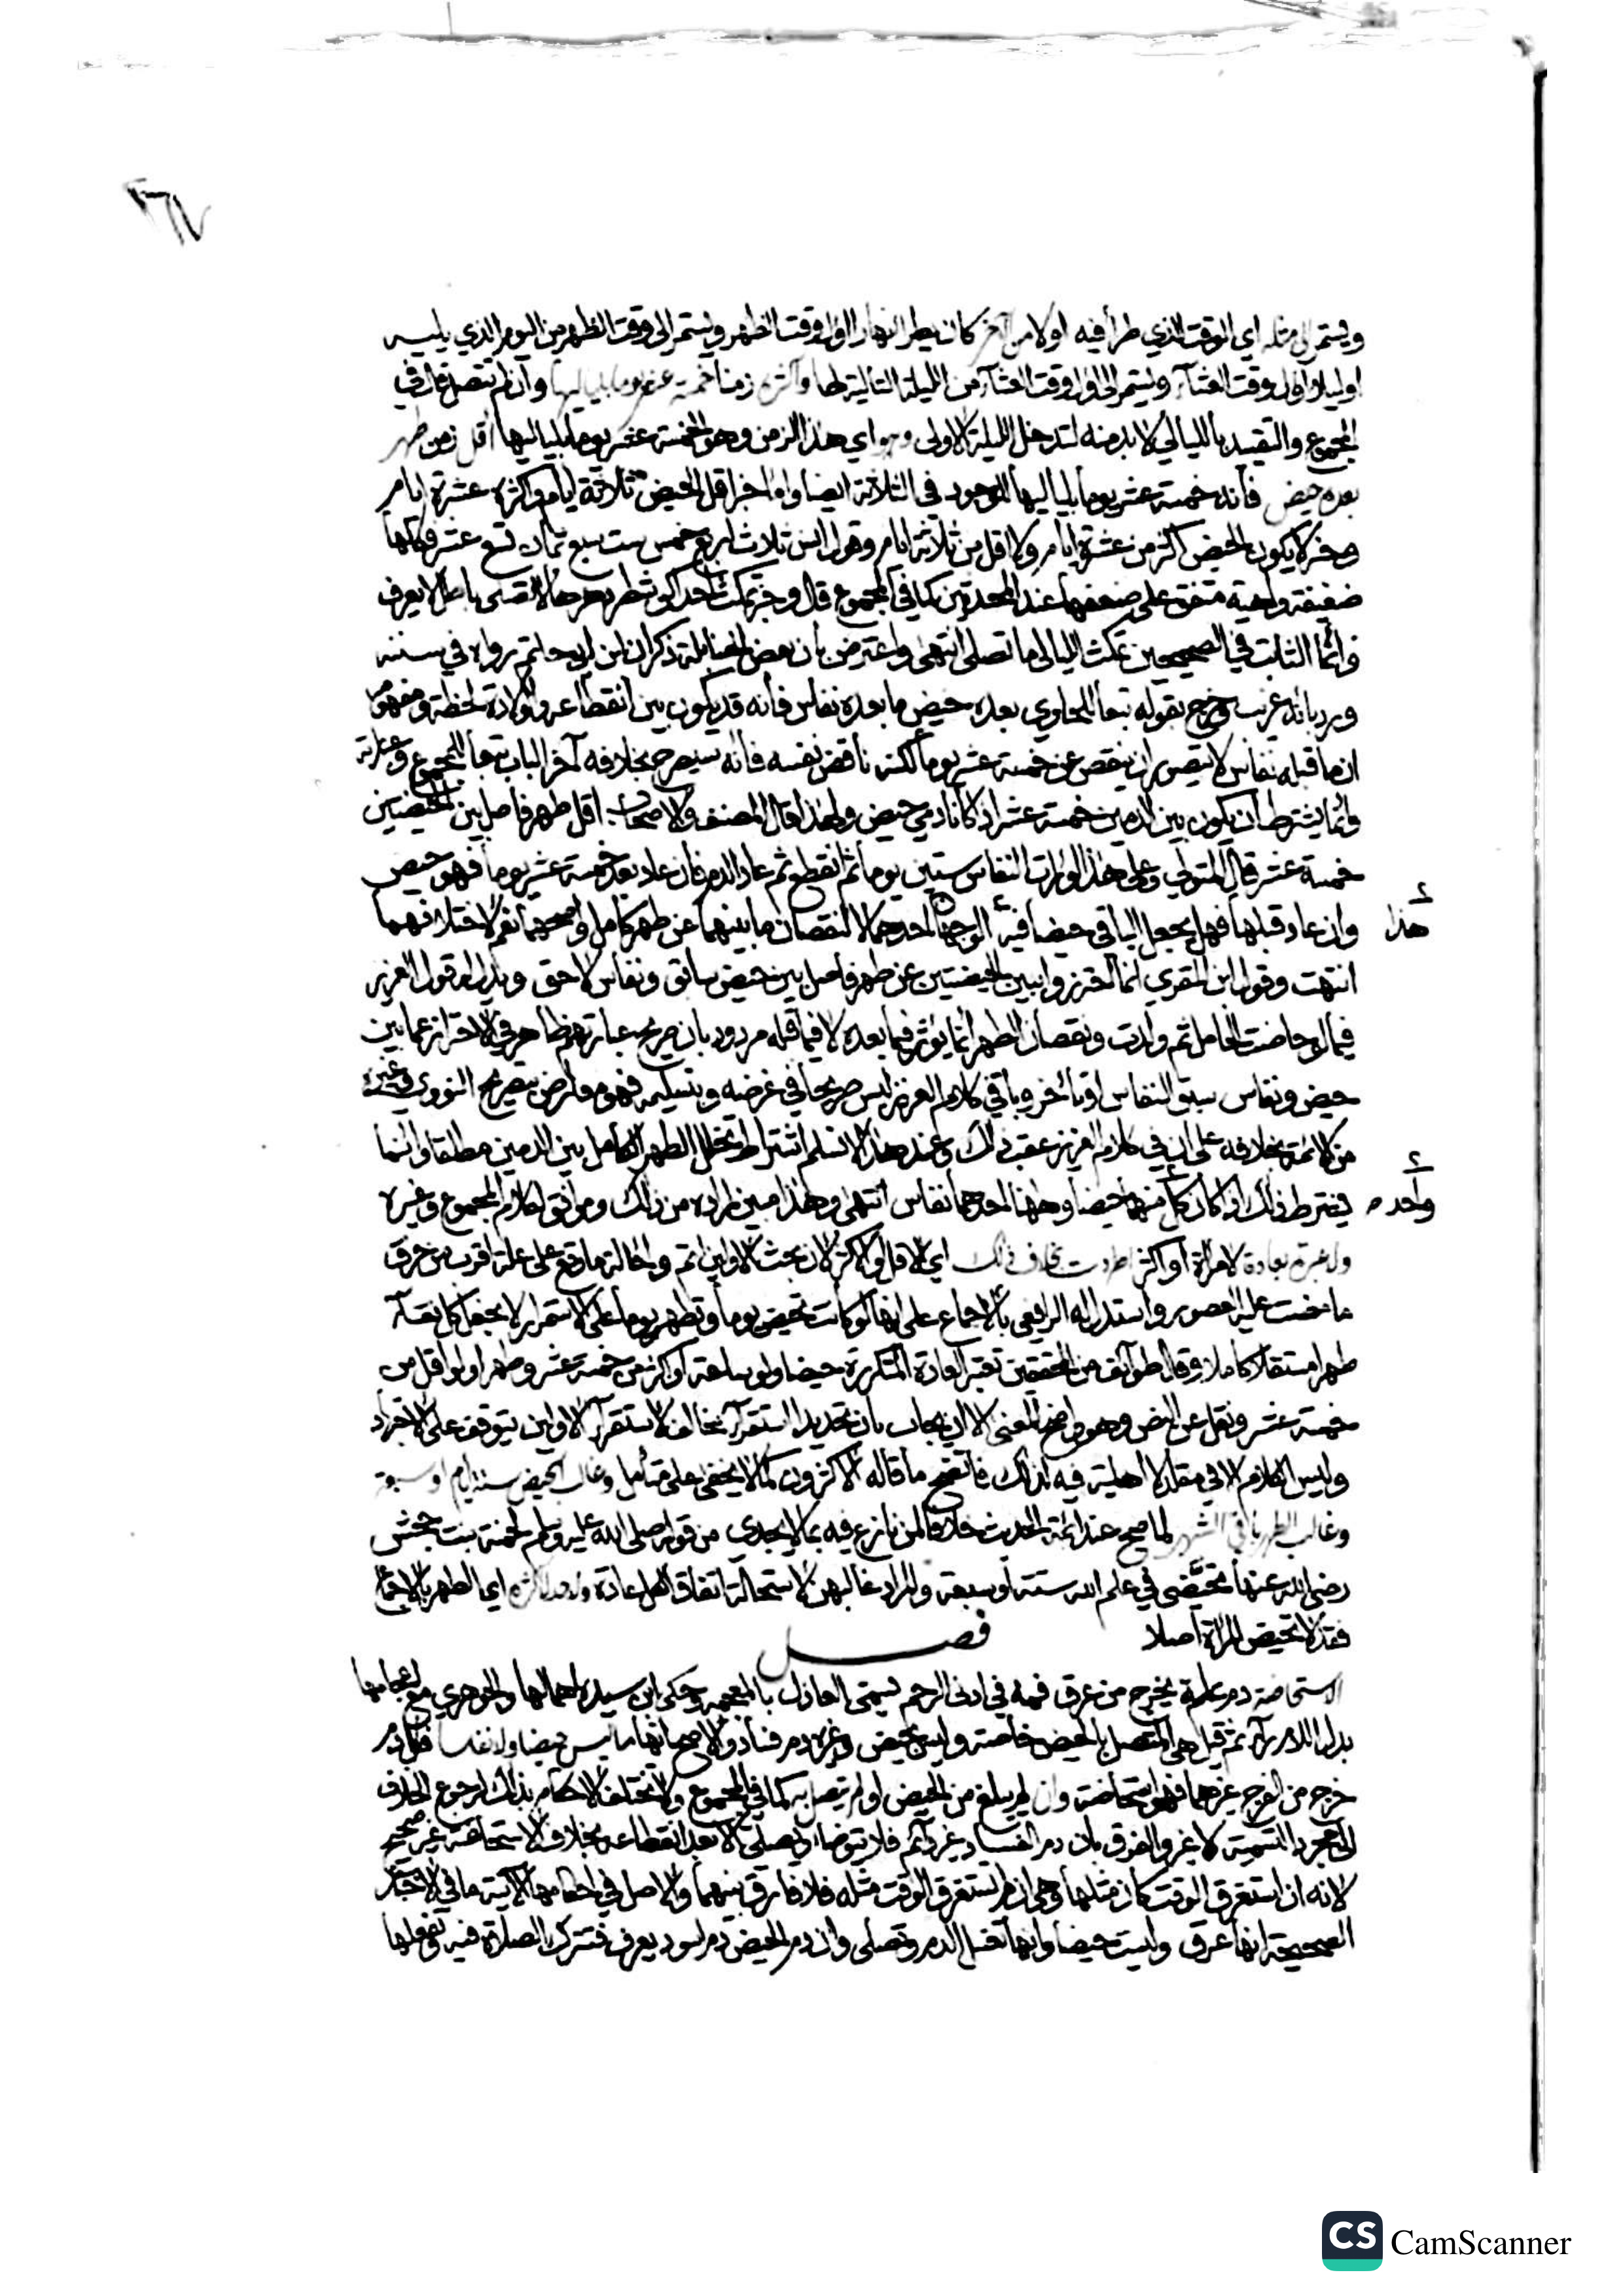 ٢٦٧
ويستمر الى مثله اي الوقت الذي طرأ فيه اولا من آخر كان يطر النهار اول وقت الظهر ويستمر الى وقت الظهر من اليوم الذي يليه
او ليلا اول وقت العشآء ويستمر الى اول وقت العشآء من الليلة التالية لها واكثره زمنا خمسة عشر يوما بلياليها وان لم تتصل في
المجموع والتقييد بالليالي لا بد منه لتدخل الليلة الاولى وهو اي هذا الزمن وهو الخمسة عشر يوما بلياليها اقل زمن طهر
بعده حيض فانه خمسة عشر يوما بلياليها للوجود في الثلاثة ايضا واما خبر اقل الحيض ثلاثة ايام واكثره عشرة ايام
وخبر لا يكون الحيض اكثر من عشرة ايام ولا اقل من ثلاثة ايام وقول انس ثلاث اربع خمس ست سبع ثمان تسع عشر فكلها
ضعيفة واهية متفق على ضعفها عند المحدثين كما في المجموع قال وخبر تمكث احداكن شطر دهرها لا تصلي باطل لا يعرف
وانما الثابت في الصحيحين تمكث الليالي ما تصلي انتهى واعترض بان بعض الحنابلة ذكر ان ابن ابي حاتم رواه في سننه
ورد بانه غريب وخرج بقوله تبعا للحاوي بعده حيض ما بعده نفاس فانه قد يكون بين انقطاعه والولادة لحظة ومفهومه
ان ما قبله نفاس لا يتصور ان ينقص عن خمسة عشر يوما لكنه ناقض نفسه فانه سيصرح بخلافه آخر الباب تبعا للمجموع وعبارته
وانما يشترط ان يكون بين الدمين خمسة عشر اذا كانا دمي حيض ولهذا قال المصنف والاصحاب اقل طهر فاصل بين الحيضتين
خمسة عشر قال المتولي وعلى هذا لو رات النفاس ستين يوما ثم انقطع ثم عاد الدم فان عاد بعد خمسة عشر يوما فهو حيض
وان عاد قبلها فهل يجعل الباقي حيضا فيه الوجهان احدهما لا لنقصان ما بينهما عن طهر كامل واصحهما نعم لاختلافهما
هذا
انتهت وقول ابن المقري انما احترزوا ببين الحيضتين عن طهر فاصل بين حيض سابق ونفاس لاحق ويدل له قول العزيز
فيما لو حاضت الحامل ثم ولدت ونقصان الطهر انما يؤثر فيما بعده لا فيما قبله مردود بان صريح عبارتهم ظاهر في الاحتراز عما بين
حيض ونفاس سبق النفاس او تأخر وباقي كلام العزيز ليس صريحا في غرضه وبتسليمه فهو معارض بتصريح النووي وغيره
من الائمة بخلافه على ان في كلام العزيز عقب ذلك وعند هذا لا نسلم اشتراط تخلل الطهر الكامل بين الدمين مطلقا وانما
يشترط ذلك اذا كان كل منهما حيضا وههنا احدهما نفاس انتهى وهذا مبين لمراده من ذلك وموافق لكلام المجموع وغيره
واحد
ولا عبرة بعادة لامراة او اكثر اطردت بخلاف ذلك اي الاقل والاكثر لان بحث الاولين اتم واحالة ما وقع على علة اقرب من خرق
ما مضت عليه العصور واستدل له الرافعي بالاجماع على انها لو كانت تحيض يوما وتطهر يوما على الاستمرار لا يجعل كل نقآء
طهرا مستقلا كاملا وقال طوائف من المحققين تعتبر العادة المتكررة حيضا ولو ساعة او اكثر من خمسة عشر وطهرا ولو اقل من
خمسة عشر ونقل عن النص وهو واضح المعنى الا ان يجاب بان تجديد استقرآء يخالف الاستقرآء الاولين يتوقف على الاجتهاد
وليس الكلام الا في مقلد لا اهلية فيه لذلك فاتضح ما قاله الاكثرون كما لا يخفى على متأمل وغالب الحيض ستة ايام او سبعة
وغالب الطهر باقي الشهر لما صح عند ائمة الحديث خلافا لمن نازع فيه بما لا يجدي من قوله صلى الله عليه وسلم لحمنة بنت جحش
رضي الله عنها تحيضي في علم الله ستة او سبعة والمراد غالبهن لاستحالة اتفاق الكل عادة ولا حد لاكثره اي الطهر بالاجماع
فقد لا تحيض المراة اصلا فصل
الاستحاضة دم علة يخرج من عرق فمه في ادنى الرحم يسمى العاذل بالمعجمة وحكى ابن سيده اهمالها والجوهري مع اعجامها
بدل اللام رآء ثم قيل هي المتصل بالحيض خاصة وليس بحيض وغيره دم فساد والاصح انها ما ليس حيضا ولا نفاسا فكل دم
خرج من الفرج غيرهما فهو استحاضة وان لم يبلغ سن الحيض او لم يتصل به كما في المجموع ولا تختلف الاحكام بذلك لرجوع الخلاف
الى مجرد التسمية لا غير والفرق بان دم الفساد غير دآئم فلا تتوضا وتصلي الا بعد انقطاعه بخلاف الاستحاضة غير صحيح
لانه ان استغرق الوقت كان مثلها وهي ان لم تستغرق الوقت مثله فلا فارق بينهما والاصل في احكامها الاتية ما في الاخبار
الصحيحة انها عرق وليست حيضا وانها تغسل الدم وتصلي وان دم الحيض دم اسود يعرف فتترك الصلاة فيه
CS CamScanner